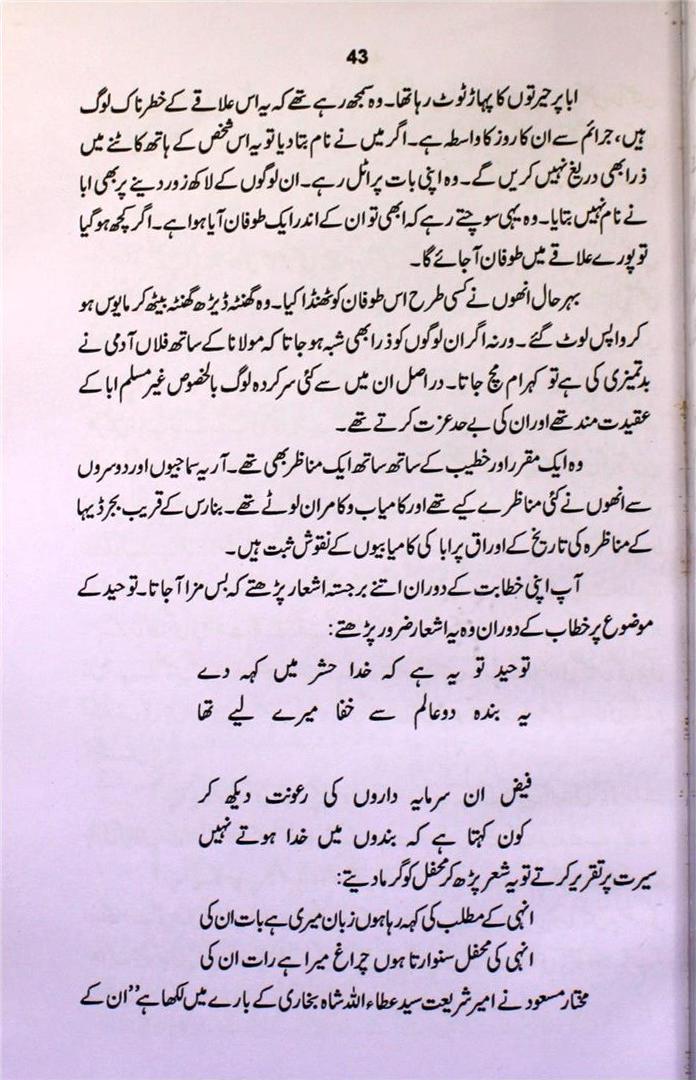 43
ابا پر حیرتوں کا پہاڑ ٹوٹ رہا تھا۔ وہ سمجھ رہے تھے کہ یہ اس علاقے کے خطرناک لوگ
ہیں، جرائم سے ان کا روز کا واسطہ ہے۔ اگر میں نے نام بتا دیا تو یہ اس شخص کے ہاتھ کاٹنے میں
ذرا بھی دریغ نہیں کریں گے۔ وہ اپنی بات پر اٹل رہے۔ ان لوگوں کے لاکھ زور دینے پر بھی ابا
نے نام نہیں بتایا۔ وہ یہی سوچتے رہے کہ ابھی تو ان کے اندر ایک طوفان آیا ہوا ہے۔ اگر کچھ ہو گیا
تو پورے علاقے میں طوفان آ جائے گا۔
بہرحال انھوں نے کسی طرح اس طوفان کو ٹھنڈا کیا۔ وہ گھنٹہ ڈیڑھ گھنٹہ بیٹھ کر مایوس ہو
کر واپس لوٹ گئے۔ ورنہ اگر ان لوگوں کو ذرا بھی شبہ ہو جاتا کہ مولانا کے ساتھ فلاں آدمی نے
بدتمیزی کی ہے تو کہرام مچ جاتا۔ دراصل ان میں سے کئی سرکردہ لوگ بالخصوص غیر مسلم ابا کے
عقیدت مند تھے اور ان کی بے حد عزت کرتے تھے۔
وہ ایک مقرر اور خطیب کے ساتھ ساتھ ایک مناظر بھی تھے۔ آریہ سماجیوں اور دوسروں
سے انھوں نے کئی مناظرے کیے تھے اور کامیاب و کامران لوٹے تھے۔ بنارس کے قریب بجرڈیہا
کے مناظرہ کی تاریخ کے اوراق پر ابا کی کامیابیوں کے نقوش ثبت ہیں۔
آپ اپنی خطابت کے دوران اتنے برجستہ اشعار پڑھتے کہ بس مزا آ جاتا۔ توحید کے
موضوع پر خطاب کے دوران وہ یہ اشعار ضرور پڑھتے:
توحید تو یہ ہے کہ خدا حشر میں کہہ دے
یہ بندہ دو عالم سے خفا میرے لیے تھا
فیض ان سرمایہ داروں کی رعونت دیکھ کر
کون کہتا ہے کہ بندوں میں خدا ہوتے نہیں
سیرت پر تقریر کرتے تو یہ شعر پڑھ کر محفل کو گرما دیتے:
انہی کے مطلب کی کہہ رہا ہوں زبان میری ہے بات ان کی
انہی کی محفل سنوارتا ہوں چراغ میرا ہے رات ان کی
مختار مسعود نے امیر شریعت سید عطاء اللہ شاہ بخاری کے بارے میں لکھا ہے ”ان کے